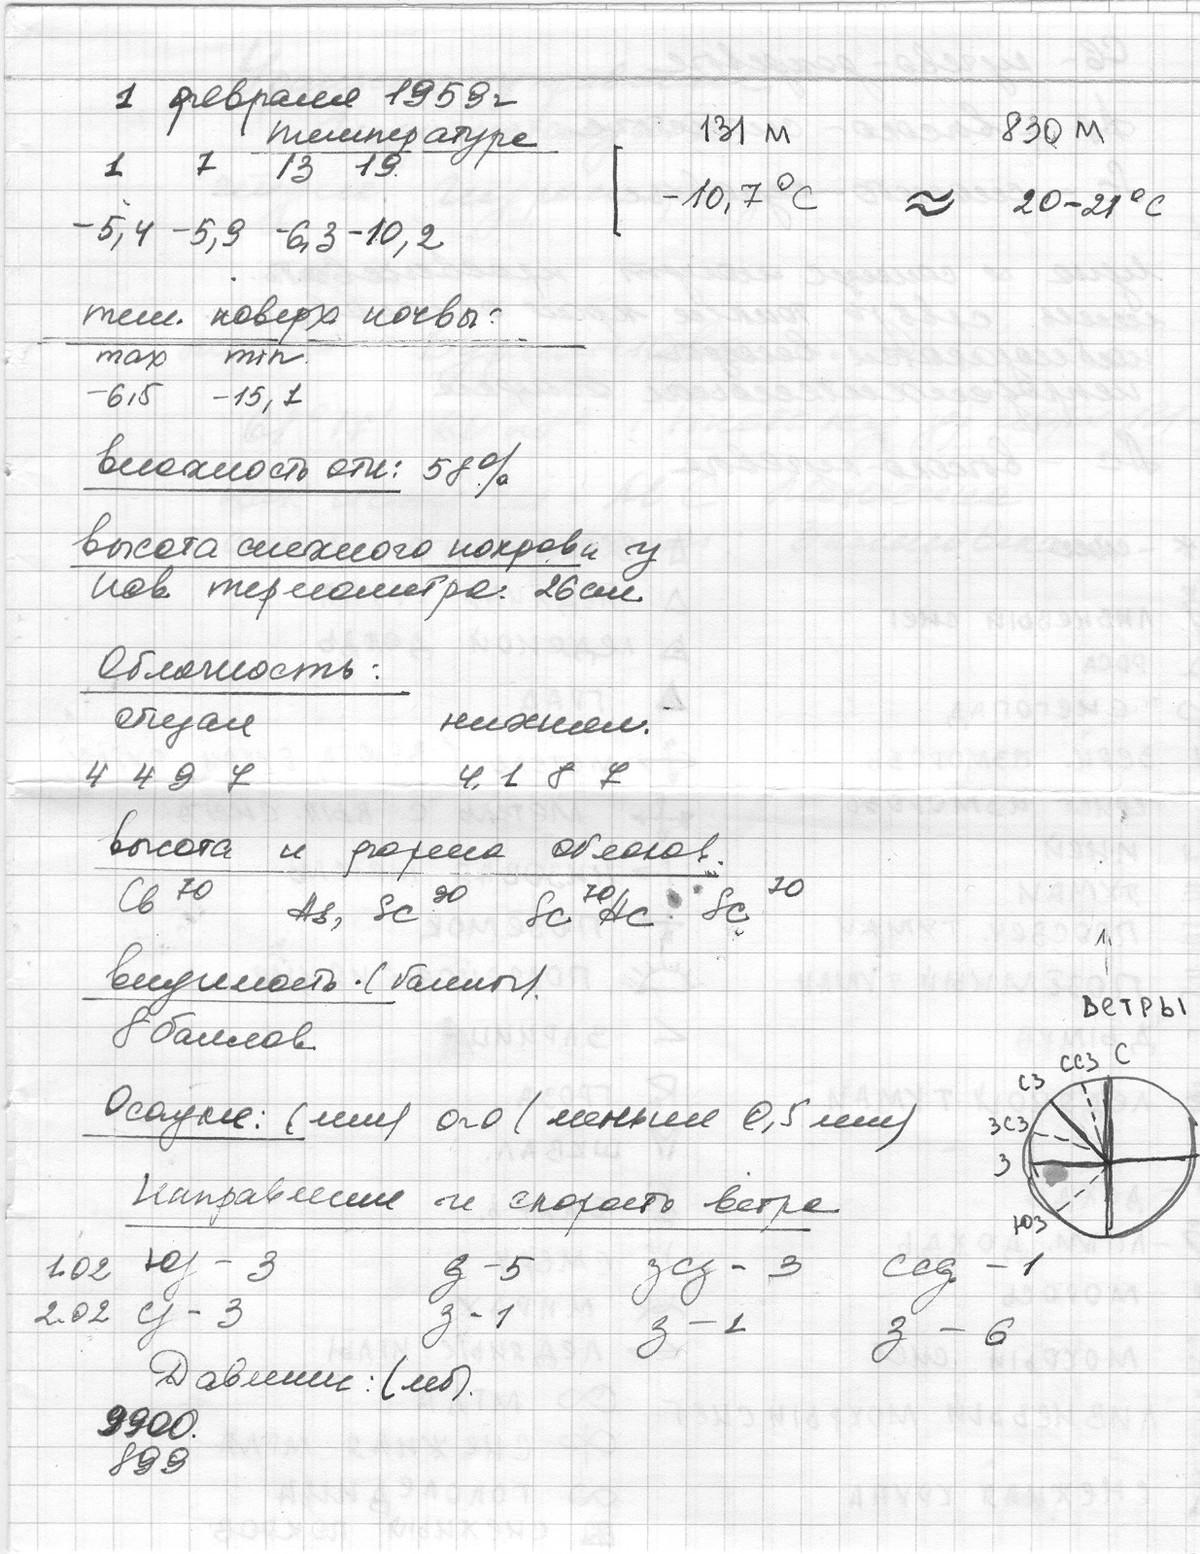 1 февраля 1959г
температура
1 7 13 19
-5,4 -5,9 -6,3 -10,2
131 м 830 м
-10,7°C ≈ 20-21°C
тем. поверх почвы:
max min
-6,5 -15,1
влажность отн: 58%
высота снежного покрова у
пов термометра: 26см
Облачность:
общая нижняя
4 4 9 7 4,1 8 7
высота и форма облаков.
Cb 70 As, Sc 90 Sc 70 Ac Sc 70
видимость (баллы).
8 баллов
Осадки: (мм) 0.0 (меньше 0,5 мм)
Направление и скорость ветра
1.02 ЮЗ - 3 З - 5 ЗСЗ - 3 ССЗ - 1
2.02 СЗ - 3 З - 1 З - 1 З - 6
Давление: (мб).
9900.
899
ВЕТРЫ
С
ССЗ
СЗ
ЗСЗ
З
ЮЗ